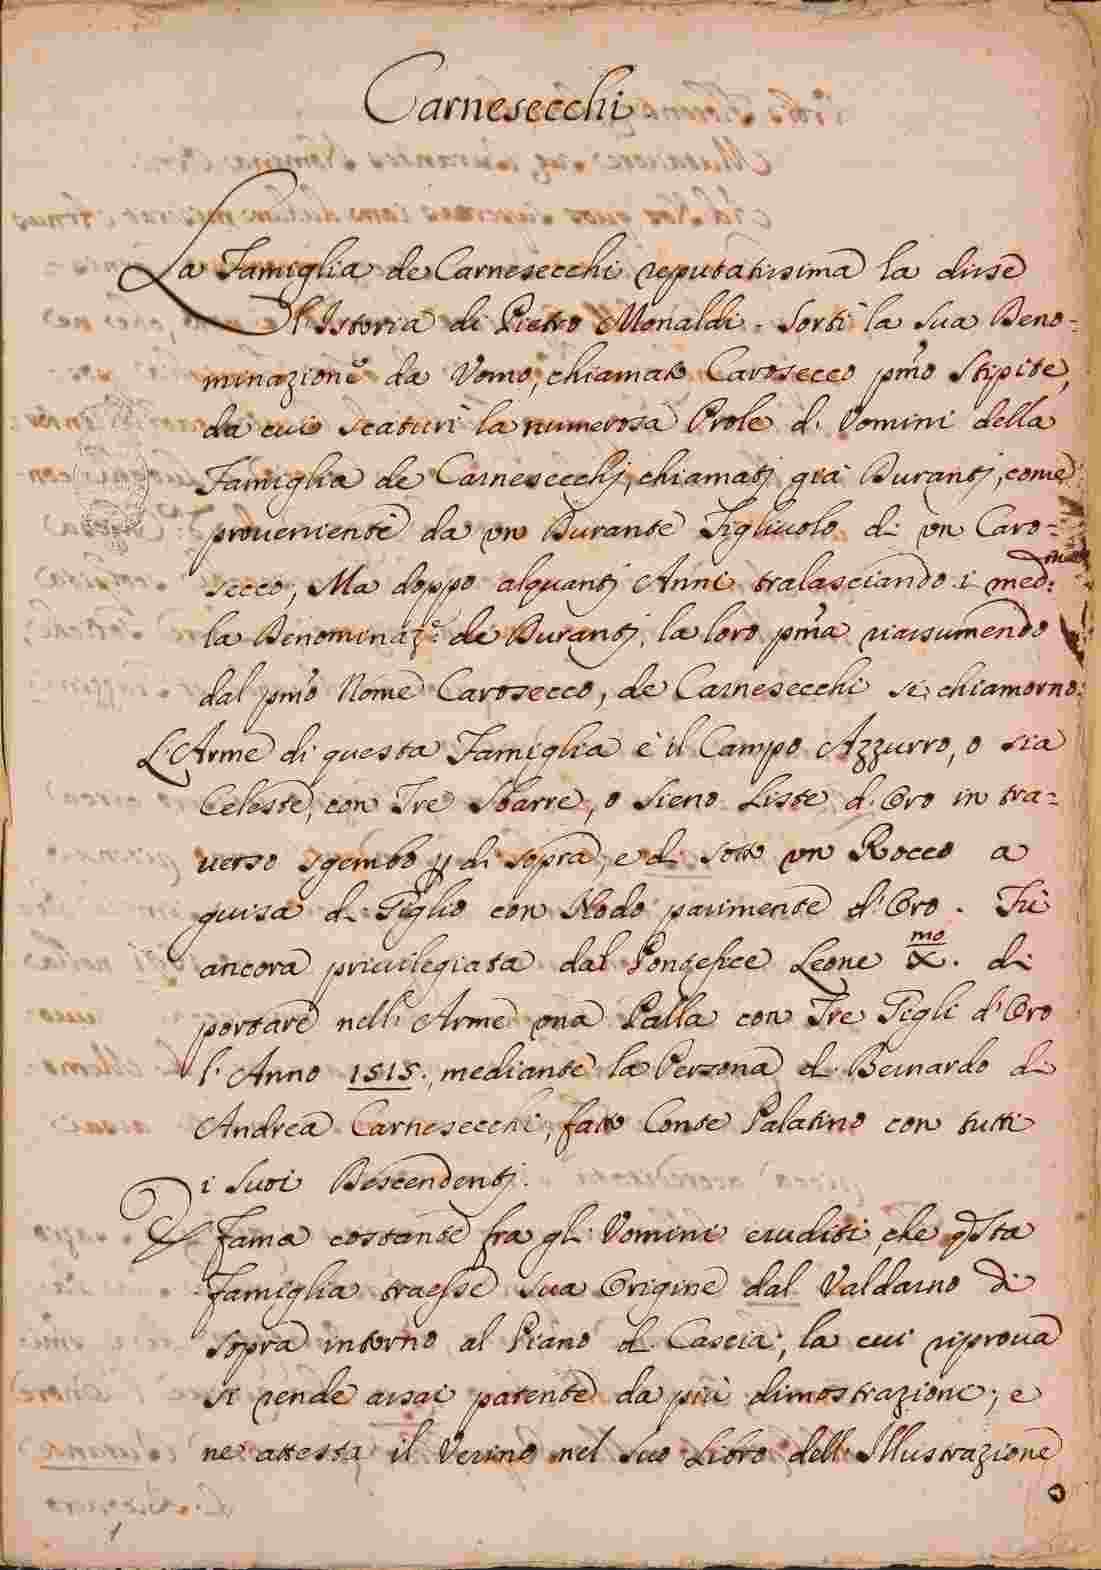 Carnesecchi
La Famiglia de Carnesecchi reputatissima la disse
l'Istoria di Pietro Monaldi. Sortì la sua Deno=
minazione da Uomo, chiamato Carosecco pmo Stipite,
da cui scaturì la numerosa Prole di Uomini della
Famiglia de Carnesecchj, chiamatj già Durantj, come
proueniente da un Durante Figliuolo di un Caro=
secco; Ma doppo alquantj Anni tralasciando i med:mi
la Denominaz.e de Durantj, la loro pma riassumendo
dal pmo Nome Carosecco, de Carnesecchi si chiamorno.
L'Arme di questa Famiglia è il Campo Azzurro, o sia
Celeste, con Tre Sbarre, o sieno Liste d'Oro in tra=
uerso sgembo di sopra, e di sotto un Rocco a
guisa di Giglio con Nodo parimente d'Oro. Fù
ancora priuilegiata dal Pontefice Leone X.mo di
portare nell'Arme una Palla con Tre Gigli d'Oro
l'Anno 1515., mediante la Persona di Bernardo di
Andrea Carnesecchi, fatto Conte Palatino con tutti
i suoi Descendentj.
È fama costante fra gli Uomini eruditi, che qsta
Famiglia traesse sua Origine dal Valdarno di
sopra intorno al Piano di Cascia; la cui riproua
si rende assai patente da più dimostrazioni; e
ne attesta il Verino nel suo Libro dell'Illustrazione
1